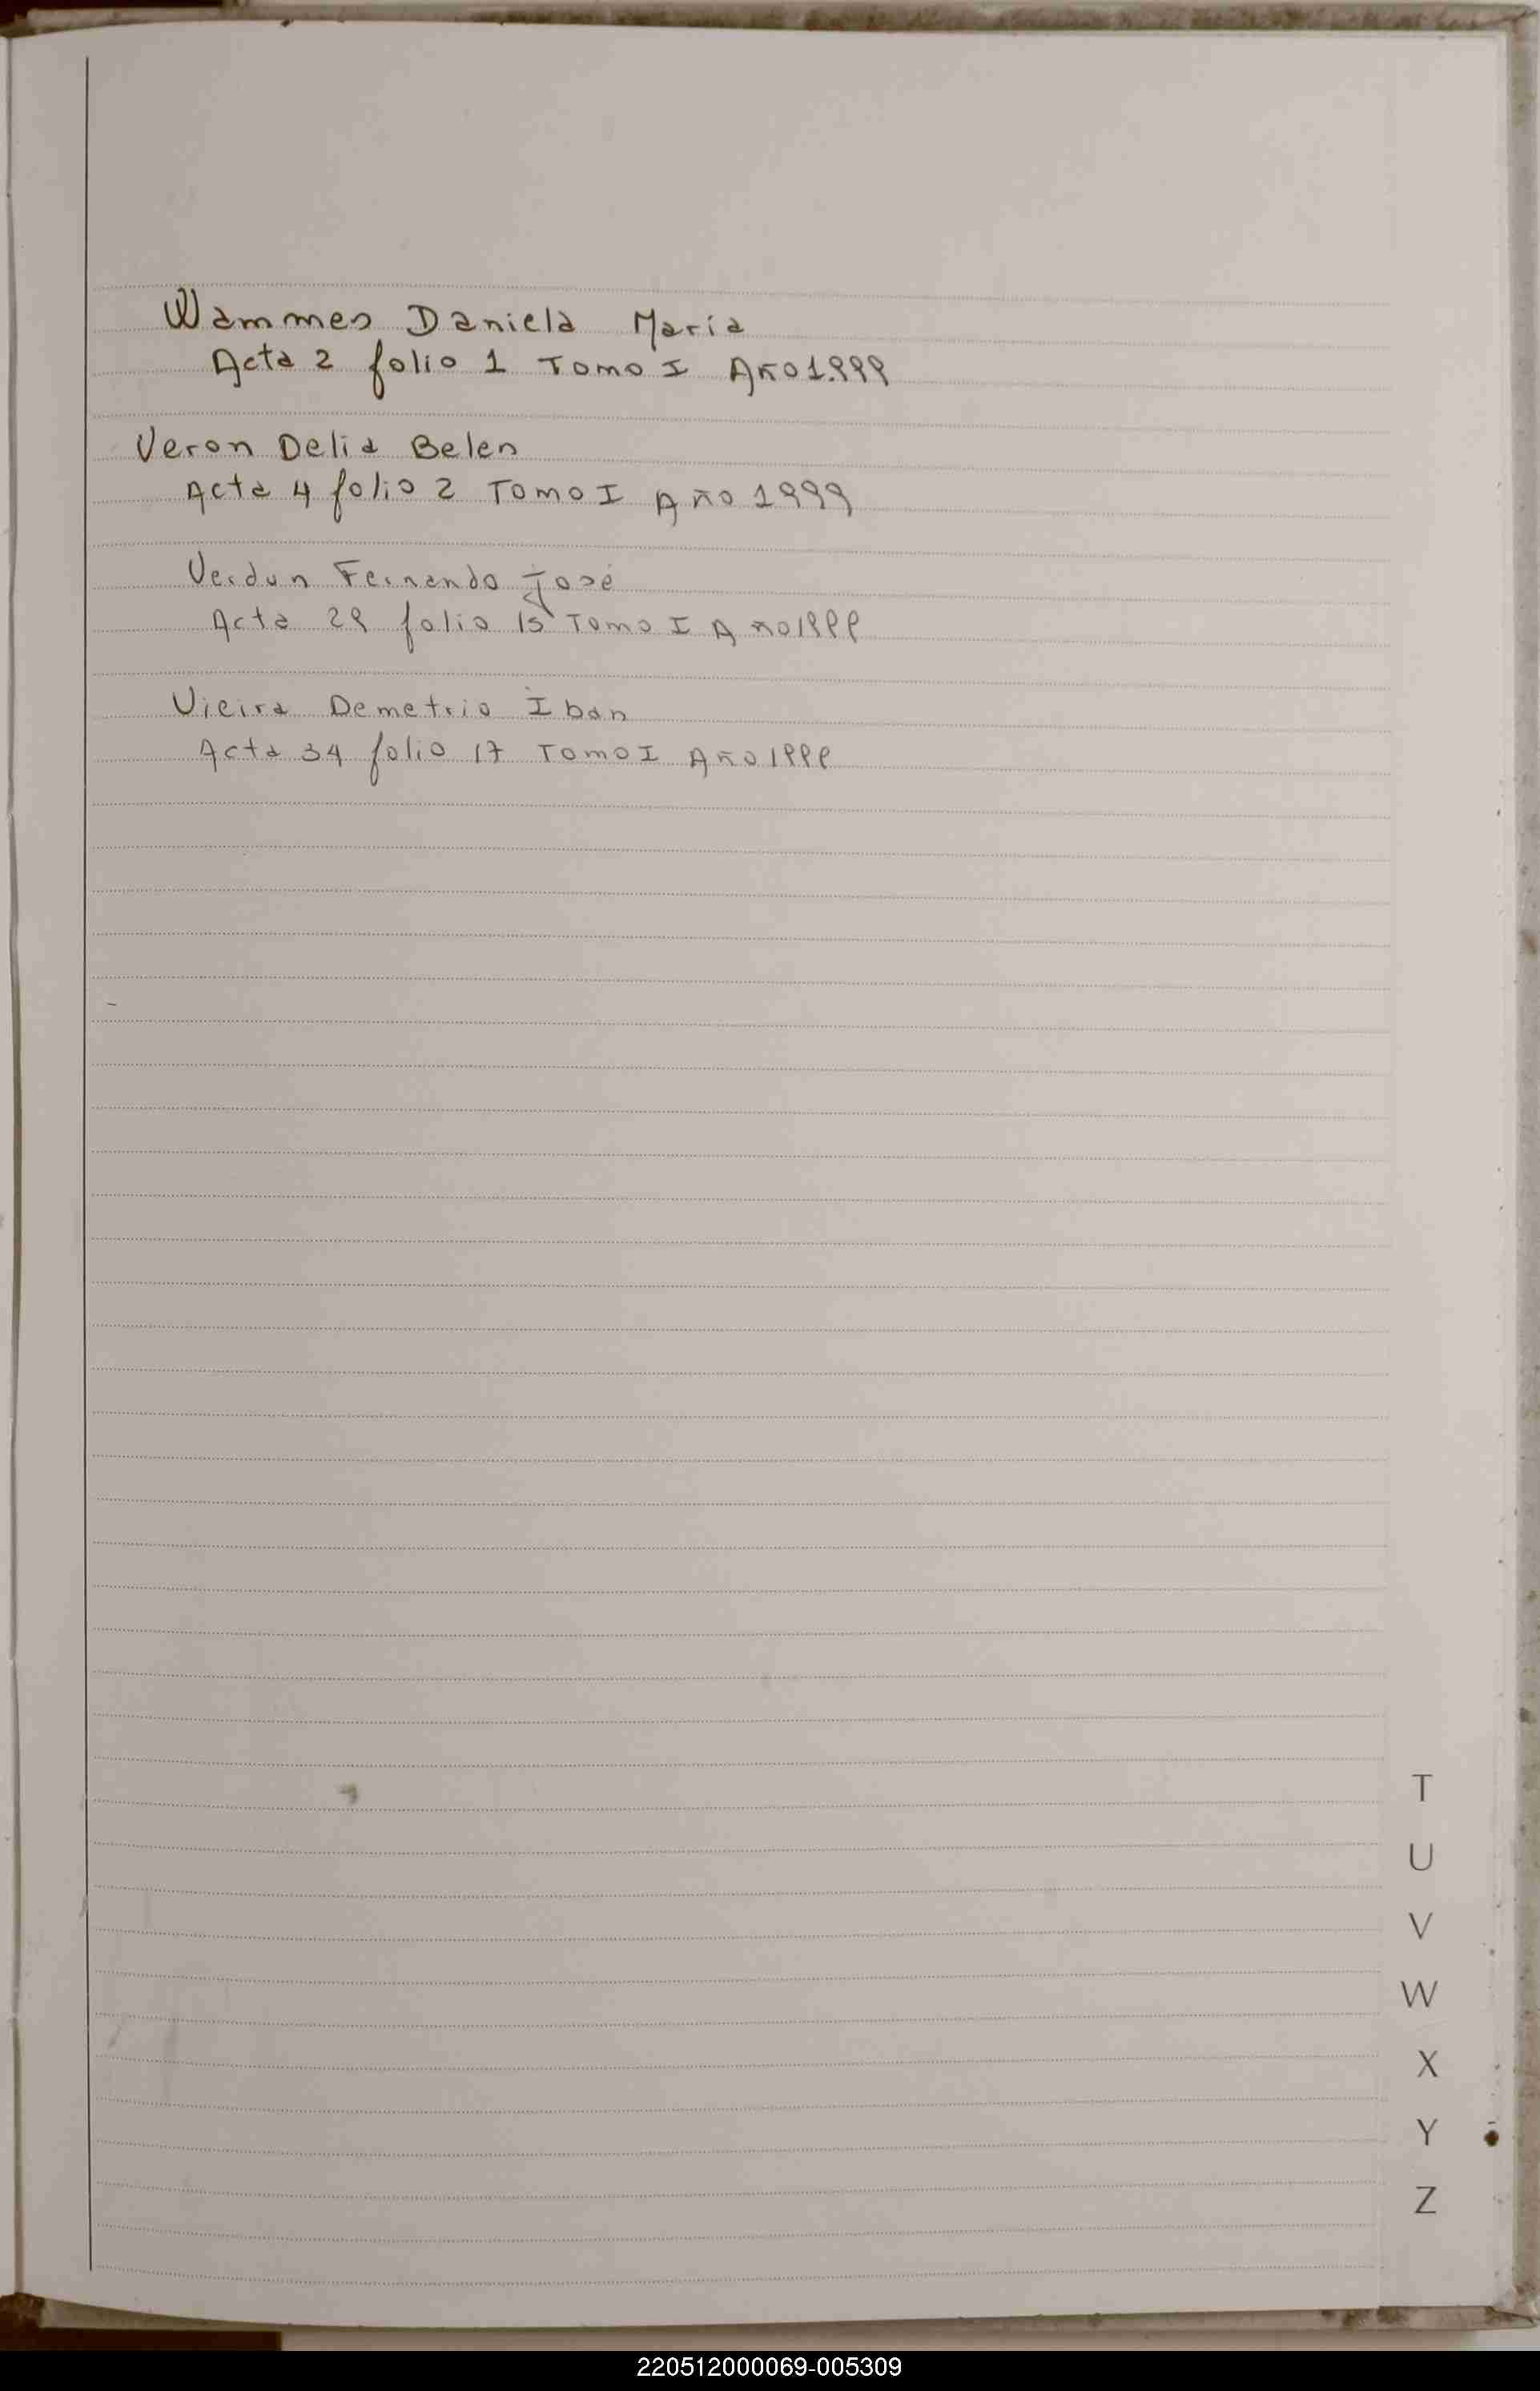 Wammes Daniela María
Acta 2 folio 1 Tomo I Año 1.999
Veron Delia Belen
Acta 4 folio 2 Tomo I Año 1999
Verdun Fernando José
Acta 29 folio 15 Tomo I Año 1999
Vieira Demetrio Iban
Acta 34 folio 17 Tomo I Año 1999
T
U
V
W
X
Y
Z
220512000069-005309